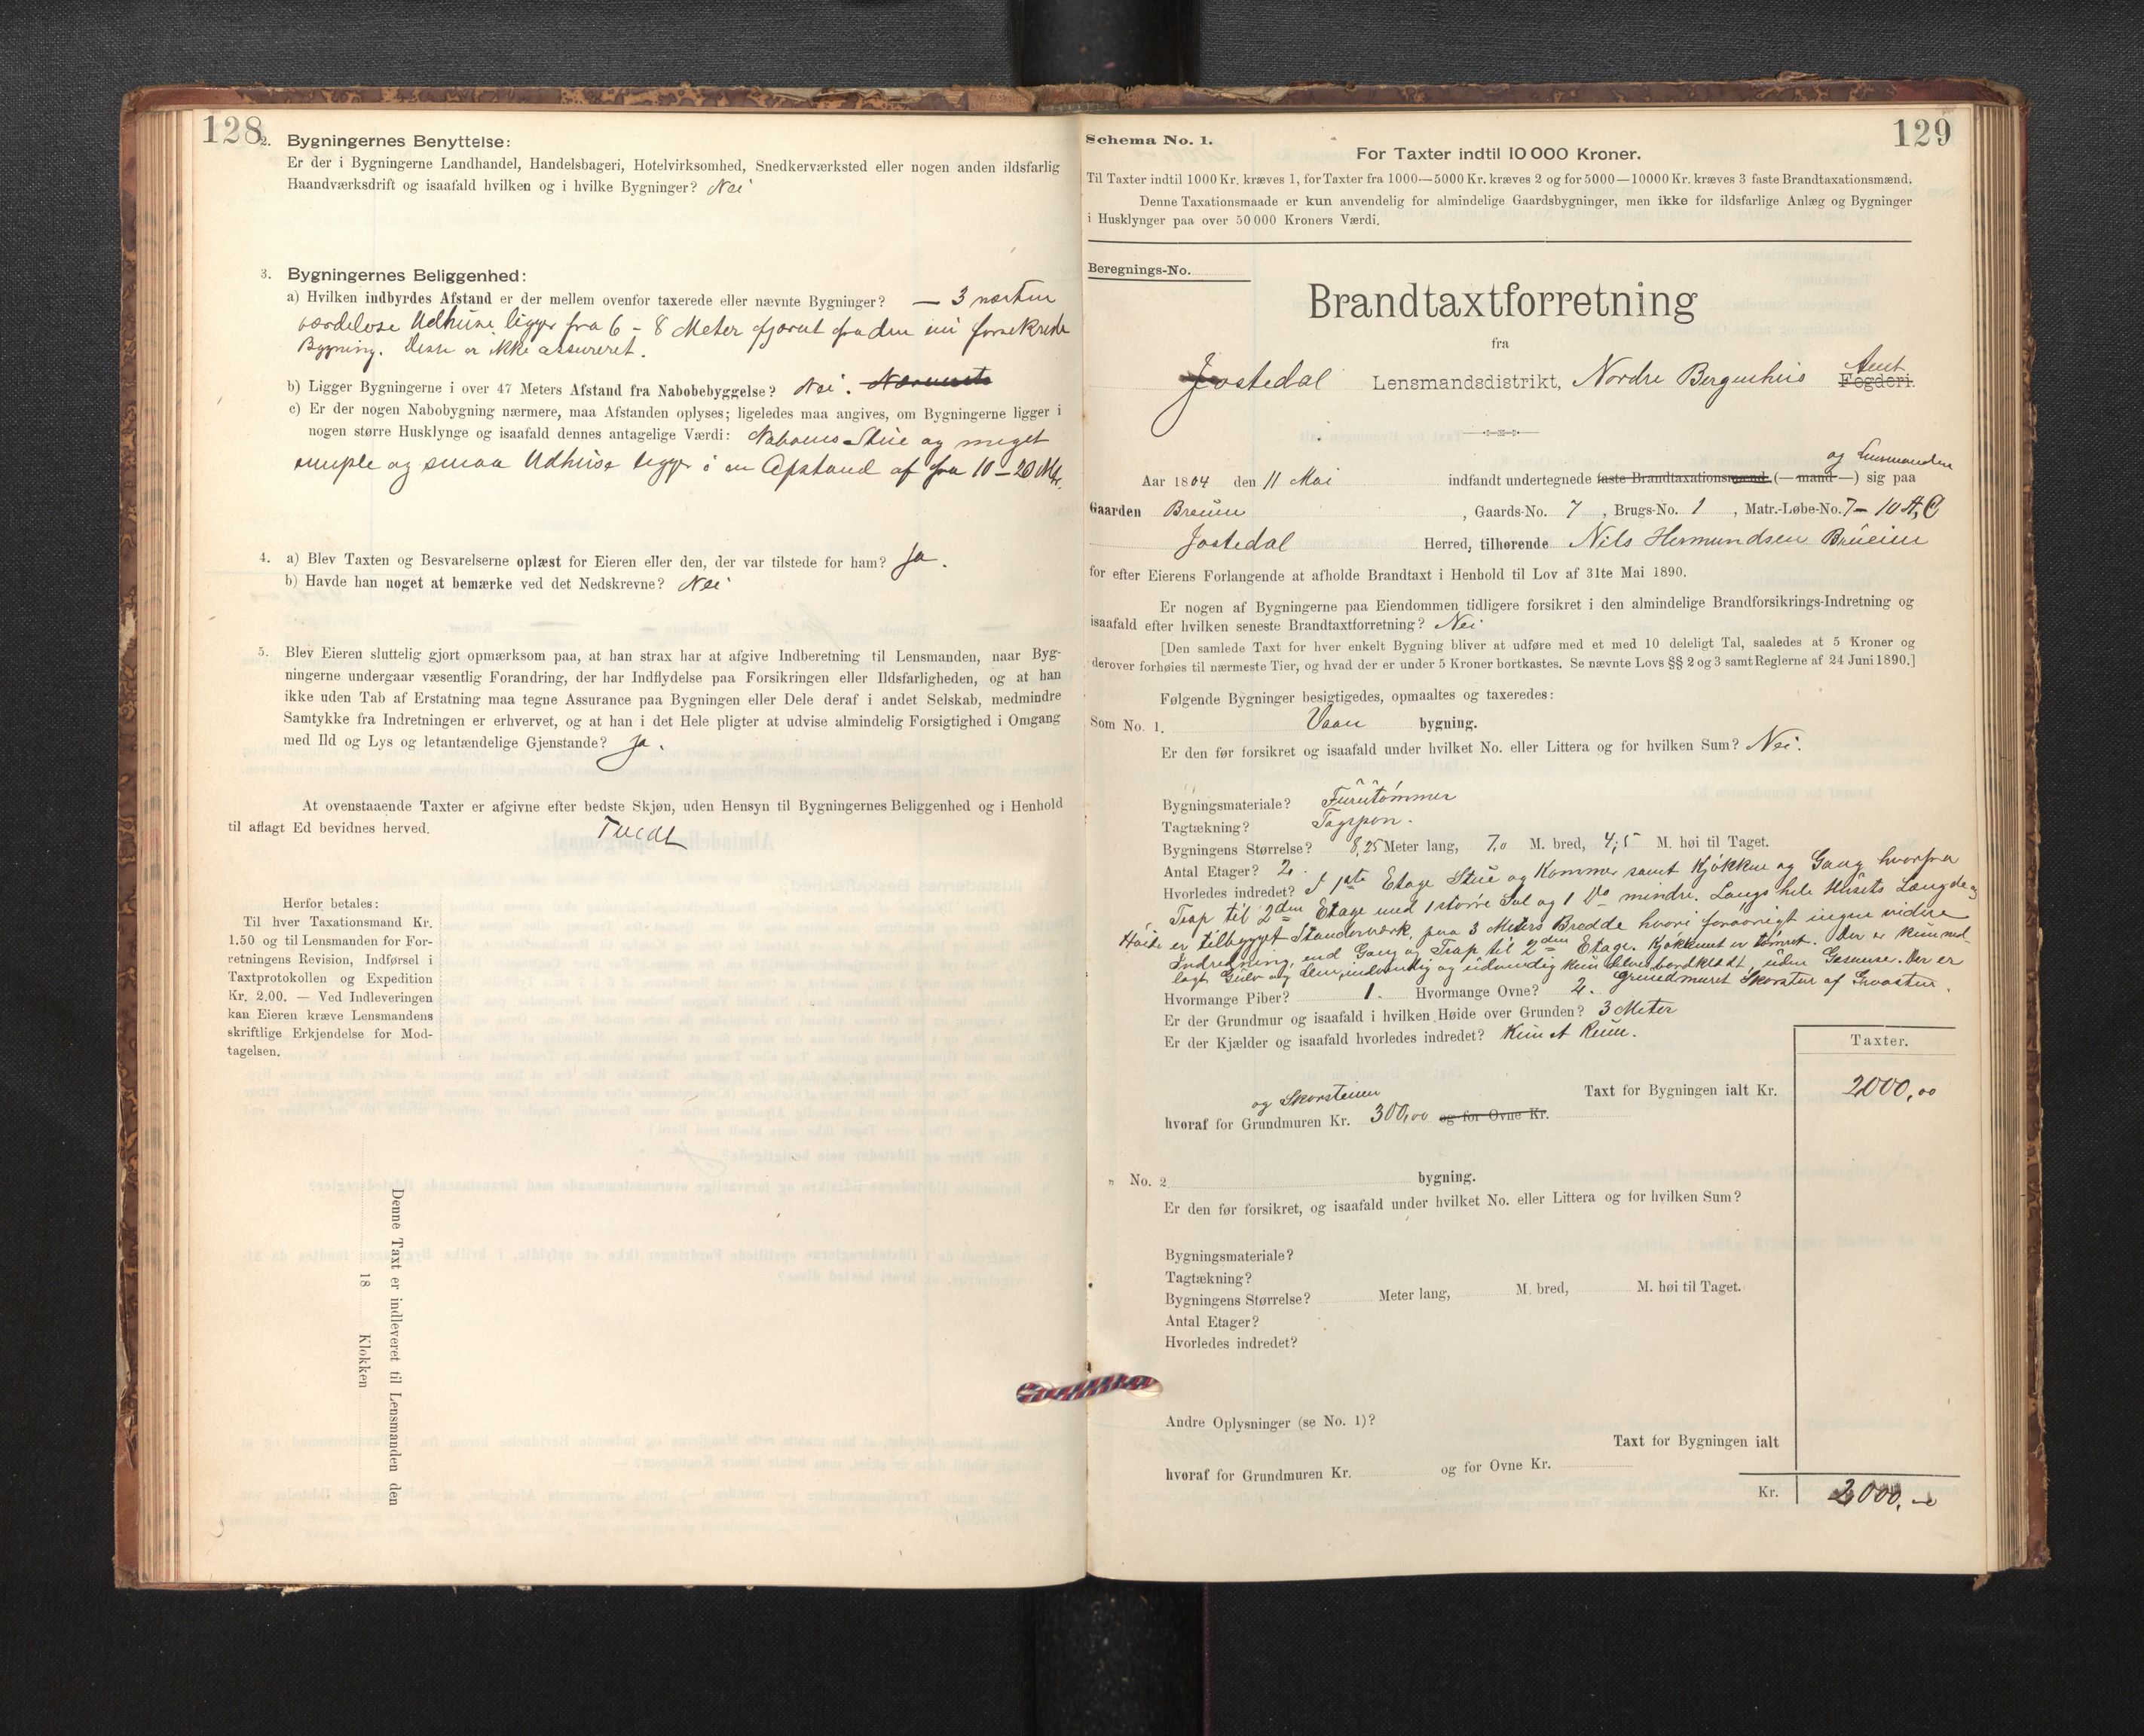 128
2. Bygningernes Benyttelse:
Er der i Bygningerne Landhandel, Handelsbageri, Hotelvirksomhed, Snedkerværksted eller nogen anden ildsfarlig
Haandværksdrift og isaafald hvilken og i hvilke Bygninger? Nei
3. Bygningernes Beliggenhed:
a) Hvilken indbyrdes Afstand er der mellem ovenfor taxerede eller nævnte Bygninger? — 3 næsten
værdeløse Udhuse ligger fra 6 - 8 Meter fjernt fra den nu forsikrede
Bygning. Disse er ikke assureret.
b) Ligger Bygningerne i over 47 Meters Afstand fra Nabobebyggelse? Nei.
c) Er der nogen Nabobygning nærmere, maa Afstanden oplyses; ligeledes maa angives, om Bygningerne ligger i
nogen større Husklynge og isaafald dennes antagelige Værdi: Naboens Stue og meget
simple og smaa Udhuse ligger i en Afstand af fra 10-20 Mtr.
4. a) Blev Taxten og Besvarelserne oplæst for Eieren eller den, der var tilstede for ham? Ja.
b) Havde han noget at bemærke ved det Nedskrevne? Nei
5. Blev Eieren sluttelig gjort opmærksom paa, at han strax har at afgive Indberetning til Lensmanden, naar Byg-
ningerne undergaar væsentlig Forandring, der har Indflydelse paa Forsikringen eller Ildsfarligheden, og at han
ikke uden Tab af Erstatning maa tegne Assurance paa Bygningen eller Dele deraf i andet Selskab, medmindre
Samtykke fra Indretningen er erhvervet, og at han i det Hele pligter at udvise almindelig Forsigtighed i Omgang
med Ild og Lys og letantændelige Gjenstande? Ja.
At ovenstaaende Taxter er afgivne efter bedste Skjøn, uden Hensyn til Bygningernes Beliggenhed og i Henhold
til aflagt Ed bevidnes herved.
Herfor betales:
Til hver Taxationsmand Kr.
1.50 og til Lensmanden for For-
retningens Revision, Indførsel i
Taxtprotokollen og Expedition
Kr. 2.00. — Ved Indleveringen
kan Eieren kræve Lensmandens
skriftlige Erkjendelse for Mod-
tagelsen.
Denne Taxt er indleveret til Lensmanden den
18 Klokken
129
Schema No. 1.
For Taxter indtil 10 000 Kroner.
Til Taxter indtil 1000 Kr. kræves 1, for Taxter fra 1000—5000 Kr. kræves 2 og for 5000—10000 Kr. kræves 3 faste Brandtaxationsmænd.
Denne Taxationsmaade er kun anvendelig for almindelige Gaardsbygninger, men ikke for ildsfarlige Anlæg og Bygninger
i Husklynger paa over 50 000 Kroners Værdi.
Beregnings-No.
Brandtaxtforretning
fra
Jostedal Lensmandsdistrikt, Nordre Bergenhus Amt Fogderi.
og Lensmanden
Aar 1804 den 11 Mai indfandt undertegnede faste Brandtaxationsmænd (— mand —) sig paa
Gaarden Bruen, Gaards-No. 7, Brugs-No. 1, Matr.-Løbe-No. 7- 10 A, C
Jostedal Herred, tilhørende Nils Hermundsen Brueim
for efter Eierens Forlangende at afholde Brandtaxt i Henhold til Lov af 31te Mai 1890.
Er nogen af Bygningerne paa Eiendommen tidligere forsikret i den almindelige Brandforsikrings-Indretning og
isaafald efter hvilken seneste Brandtaxtforretning? Nei
[Den samlede Taxt for hver enkelt Bygning bliver at udføre med et med 10 deleligt Tal, saaledes at 5 Kroner og
derover forhøies til nærmeste Tier, og hvad der er under 5 Kroner bortkastes. Se nævnte Lovs §§ 2 og 3 samt Reglerne af 24 Juni 1890.]
Følgende Bygninger besigtigedes, opmaaltes og taxeredes:
Som No. 1. Vaan bygning.
Er den før forsikret og isaafald under hvilket No. eller Littera og for hvilken Sum? Nei.
Bygningsmateriale? Furutømmer
Tagtækning? Tagspon.
Bygningens Størrelse? 8,25 Meter lang, 7,0 M. bred, 4,5 M. høi til Taget.
Antal Etager? 2.
Hvorledes indredet? I 1ste Etage Stue og Kammer samt Kjøkken og Gang hvorfra
Trap til 2den Etage med 1 større Sal og 1 Do mindre. Langs hele Husets Længde og
Høide er tilbygget Standerværk, paa 3 Meters Bredde hvori forøvrigt ingen videre
Indredning, end Gang og Trap til 2den Etage. Kjøkkenet er tømret. Der er kun ned-
lagt Gulv og Lem, indvendig og udvendig kun delvis bordklædt, uden Gesimse. Der er
grundmuret Skorsten af Graasten.
Hvormange Piber? 1. Hvormange Ovne? 2.
Er der Grundmur og isaafald i hvilken Høide over Grunden? 3 Meter
Er der Kjælder og isaafald hvorledes indredet? Kun et Rum.
Taxter.
Taxt for Bygningen ialt Kr. 2000,00
og Skorstenen
hvoraf for Grundmuren Kr. 300,00 og for Ovne Kr.
" No. 2 bygning.
Er den før forsikret, og isaafald under hvilket No. eller Littera og for hvilken Sum?
Bygningsmateriale?
Tagtækning?
Bygningens Størrelse? Meter lang, M. bred, M. høi til Taget.
Antal Etager?
Hvorledes indredet?
Andre Oplysninger (se No. 1)?
Taxt for Bygningen ialt
hvoraf for Grundmuren Kr. og for Ovne Kr.
Kr. 2000,-